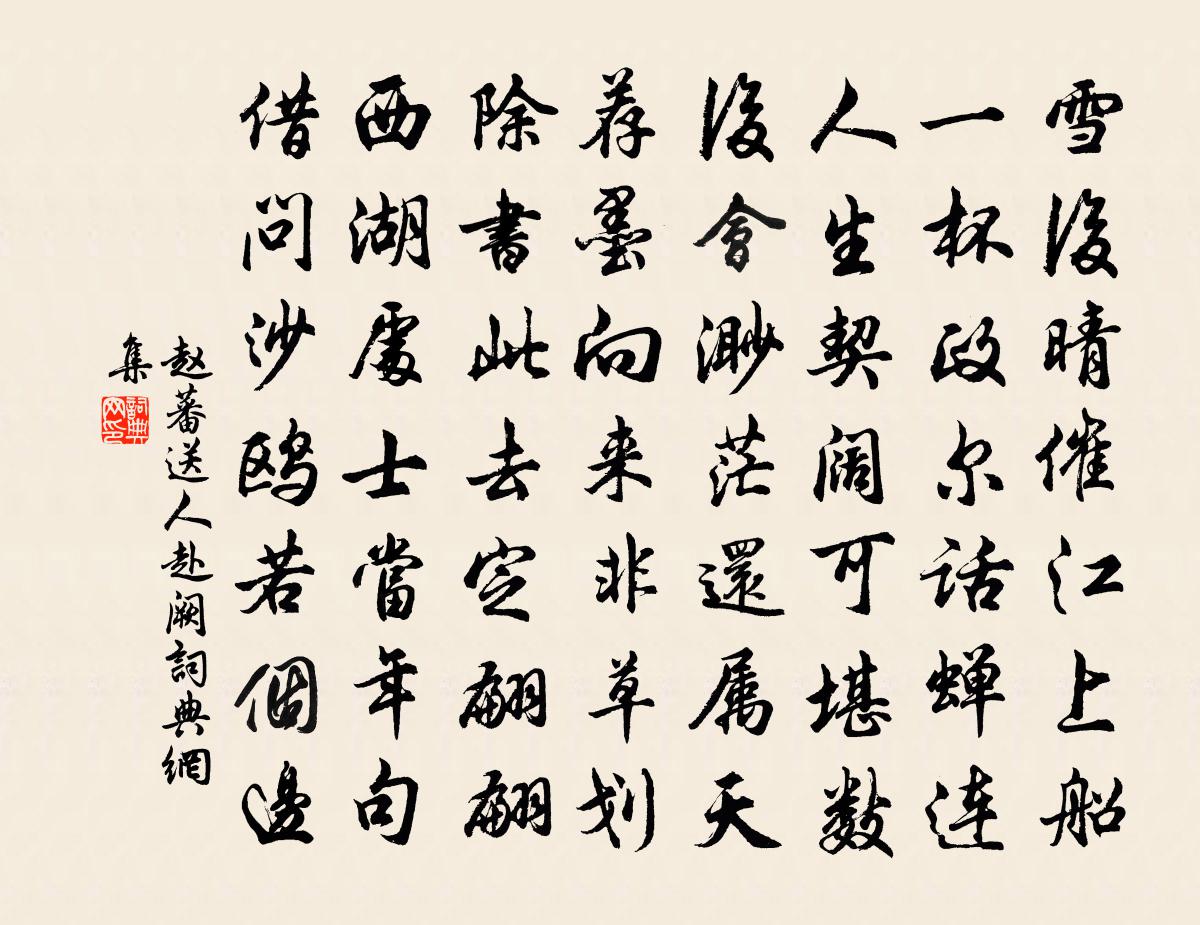 雪後晴催江上船
一杯政尔話蝉连
人生契阔可堪数
後會渺茫還属天
荐墨向来非草划
除書此去定翩翩
西湖處士當年句
借问沙鸥若個邊
赵蕃送人赴阙詞典網
集
詞典网印